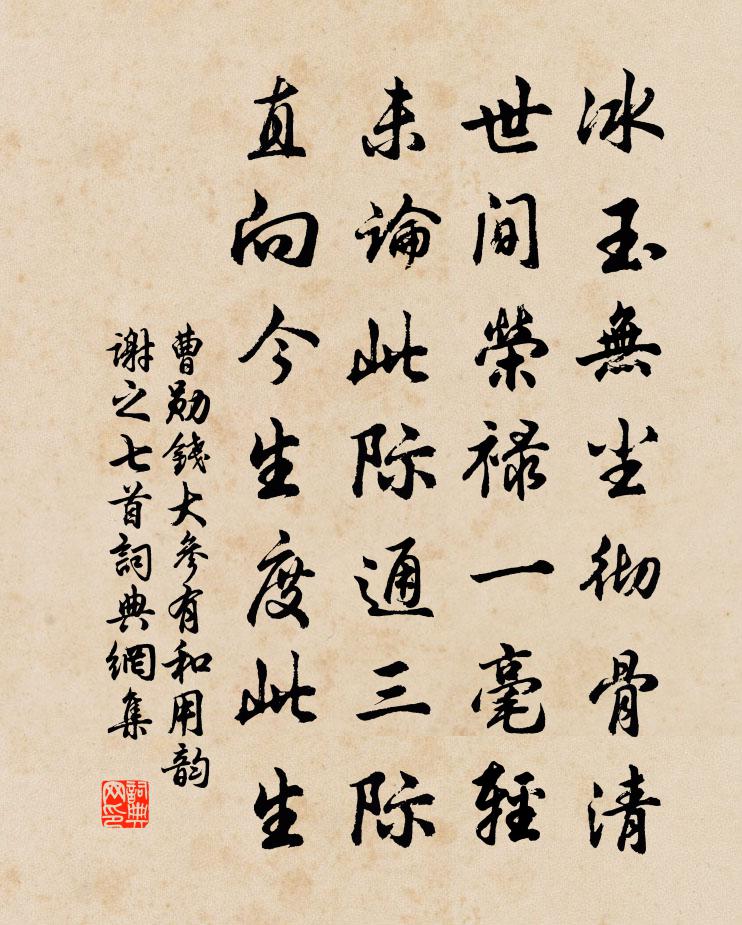 冰玉無尘彻骨清
世间榮禄一毫輕
未論此际通三际
直向今生度此生
曹勋錢大參有和用韵
謝之七首詞典網集
詞典网印